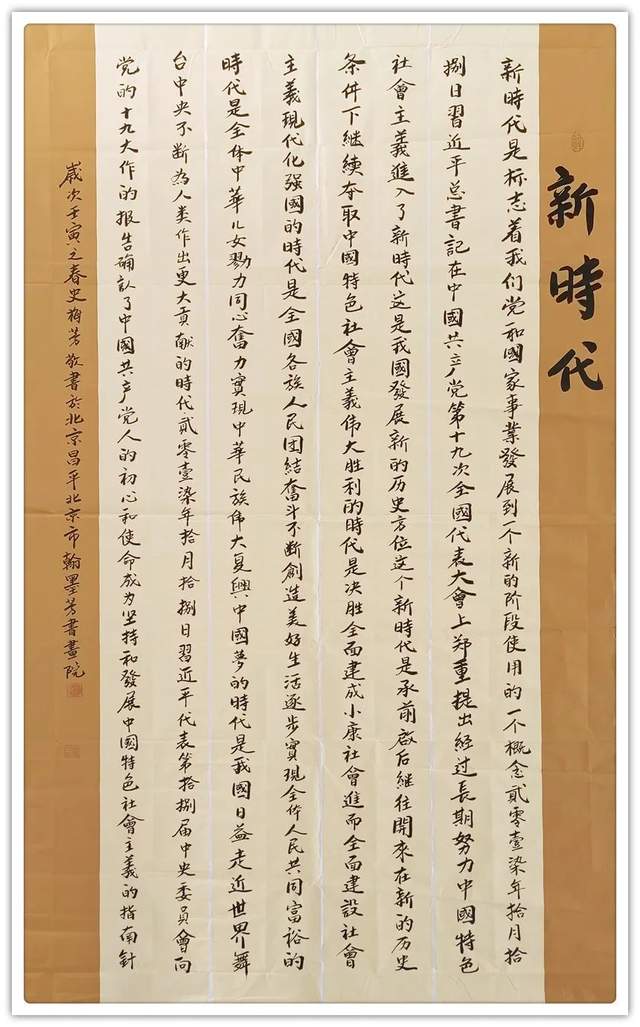 新時代
新時代是标志着我们党和國家事業發展到一个新的阶段使用的一个概念贰零壹柒年拾月拾
捌日習近平总書記在中國共产党第十九次全國代表大會上郑重提出经过長期努力中國特色
社會主義進入了新時代这是我國發展新的历史方位这个新時代是承前啟后继往開來在新的历史
条件下继续夺取中國特色社會主義伟大胜利的時代是决胜全面建成小康社會進而全面建設社會
主義現代化强國的時代是全國各族人民团結奮斗不断創造美好生活逐步實現全体人民共同富裕的
時代是全体中華儿女勠力同心奮力實現中華民族伟大复興中國夢的時代是我國日益走近世界舞
台中央不断為人类作出更大貢献的時代贰零壹柒年拾月拾捌日習近平代表第拾捌届中央委員會向
党的十九大作的报告确认了中國共产党人的初心和使命成为坚持和發展中國特色社會主義的指南針
歲次壬寅之春史梅芳敬書於北京昌平北京市翰墨芳書畫院